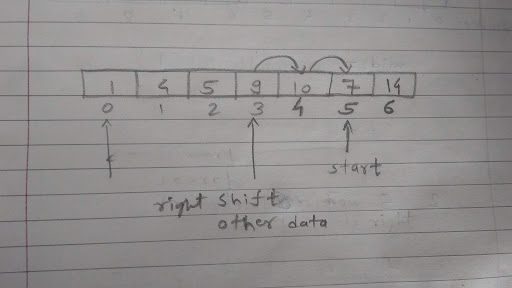 1 4 5 9 10 7 14
0 1 2 3 4 5 6
start
right shift
other data